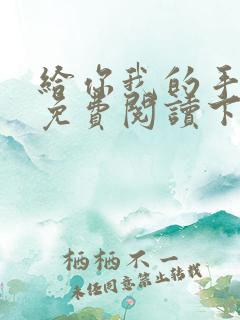 給你我的手
免費閱讀下
栖栖不一
未经同意禁止转载